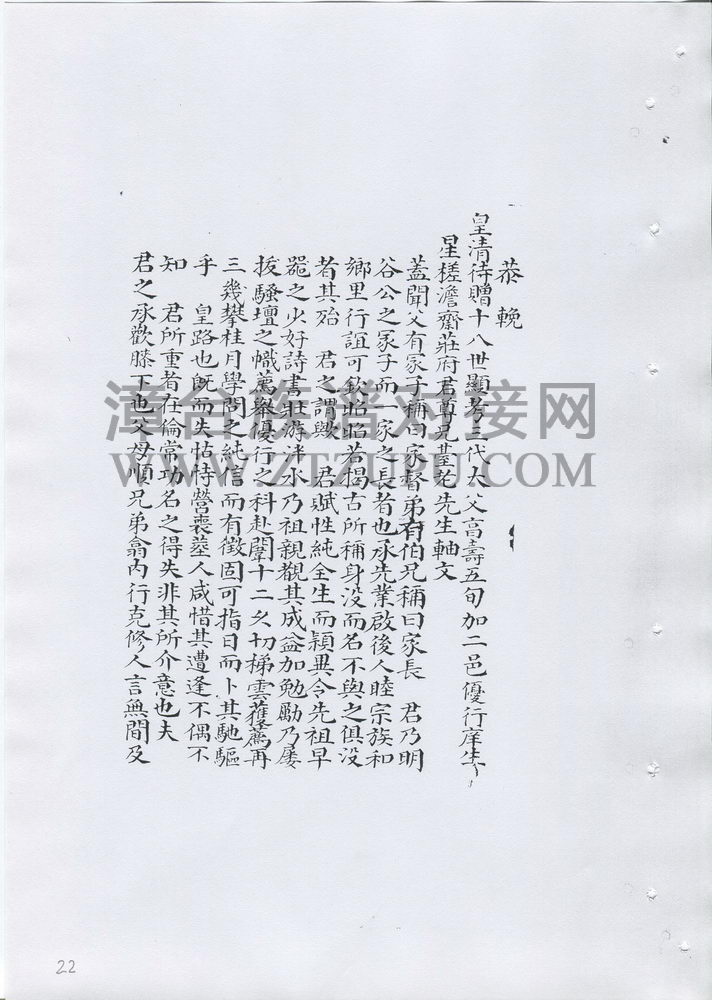 恭輓
皇清待贈十八世顯考三代大父亯壽五旬加二邑優行庠生
星槎澹齋莊府君尊兄臺老先生軸文
蓋聞父有冢子稱曰家督弟有伯兄稱曰家長 君乃明
谷公之冢子而一家之長者也承先業啟後人睦宗族和
鄉里行誼可欽昭昭若揭古所稱身沒而名不與之俱沒
者其殆 君之謂與 君賦性純全生而穎異令先祖早
器之少好詩書壯游泮水乃祖親覩其成益加勉勵乃屢
拔騷壇之幟薦舉優行之科赴闈十二次切梯雲薦再
三幾攀桂月學問之純信而有徵固可指日而卜其馳驅
乎 皇路也旣而失怙恃營喪葬人咸惜其遭逢不偶不
知 君所重者在倫常功名之得失非其所介意也夫
君之承歡膝下也父母順兄弟翕內行克修人言無間及
漳台族谱对接网
WWW.ZTZUPU.COM
22